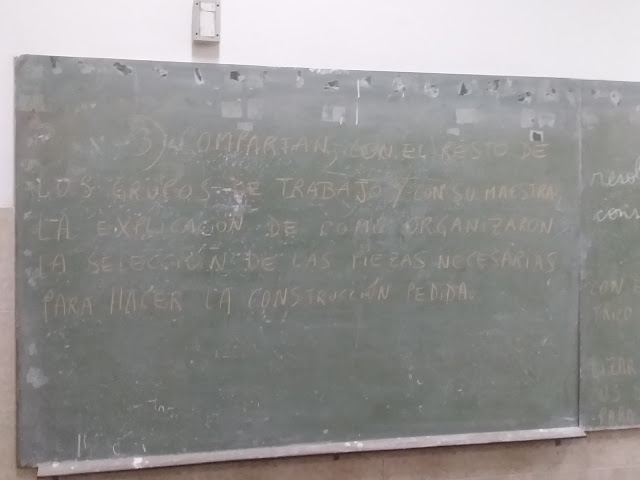 3) COMPARTAN, CON EL RESTO DE
LOS GRUPOS DE TRABAJO Y CON SU MAESTRA,
LA EXPLICACIÓN DE COMO ORGANIZARON
LA SELECCIÓN DE LAS PIEZAS NECESARIAS
PARA HACER LA CONSTRUCCIÓN PEDIDA.
CON E
TRICO
LIZAR
US
PARA